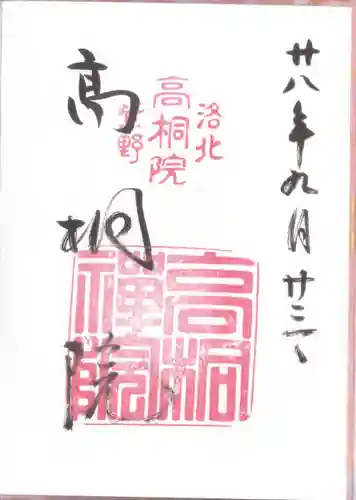 廿八年九月廿三日
洛北
高桐院
紫野
高桐院
高桐
禅院